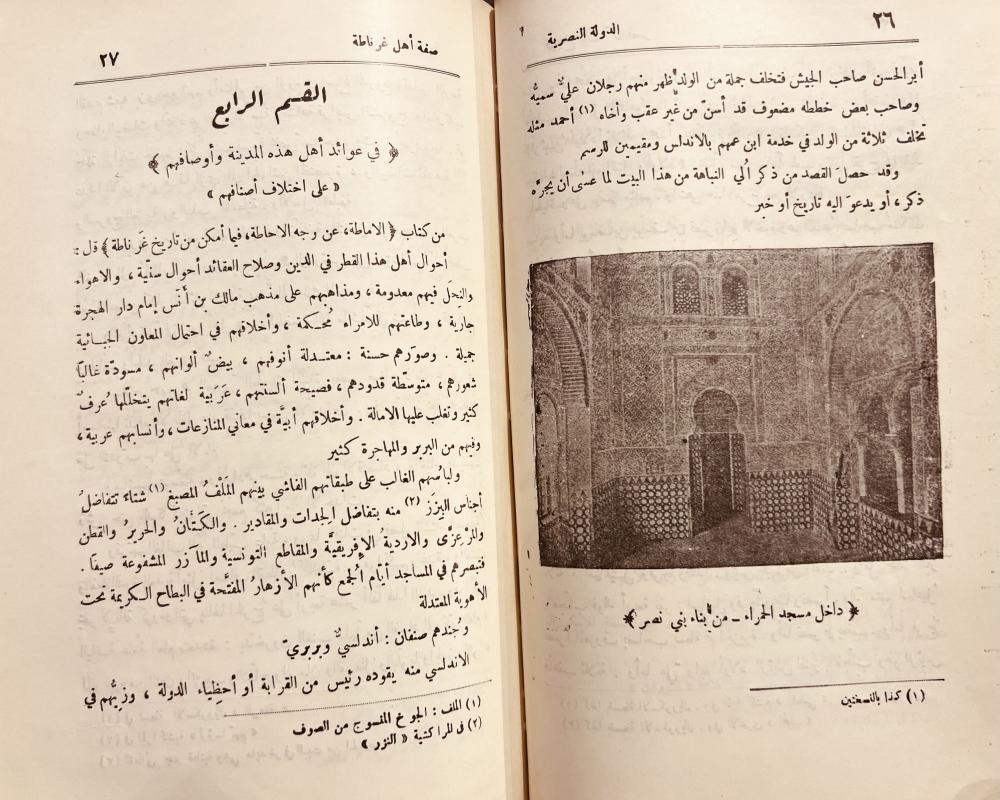 ٢٦
الدولة النصرية
أبو الحسن صاحب الجيش فتخلف جملة من الولد ظهر منهم رجلان عليٌّ سميُّه
وصاحب بعض خططه مضعوف قد أسنّ من غير عقب وأخاه (١) أحمد مثله
تخلف ثلاثة من الولد في خدمة ابن عمهم بالاندلس ومقيمين للرسم
وقد حصل القصد من ذكر أُلي النباهة من هذا البيت لما عسى أن يجرَّه
ذكر، أو يدعوَ اليه تاريخ أو خبر
﴿ داخل مسجد الحمراء ــ من بناء بني نصر ﴾
(١) كذا بالنسختين
صفة أهل غرناطة
٢٧
القسم الرابع
﴿ في عوائد أهل هذه المدينة وأوصافهم ﴾
« على اختلاف أصنافهم »
من كتاب ﴿ الاماطة، عن وجه الاحاطة، فيما أمكن من تاريخ غَرناطة ﴾ قال:
أحوال أهل هذا القطر في الدين وصلاح العقائد أحوال سنّية، والاهواء
والنِحَل فيهم معدومة، ومذاهبهم على مذهب مالك بن أنَس إمام دار الهجرة
جارية، وطاعتهم للامراء مُحكمة، وأخلاقهم في احتمال المعاون الجبائية
جميلة. وصوَرهم حسنة: معتدلة أنوفهم، بيضٌ ألوانهم، مسودّة غالبًا
شعورهم، متوسّطة قدودهم، فصيحة ألسنتهم، عَرَبية لغاتهم يتخلّلها عُرفٌ
كثير وتغلب عليها الامالة. وأخلاقهم أبيَّة في معاني المنازعات، وأنسابهم عربية،
وفيهم من البربر والمهاجرة كثير
ولباسُهم الغالب على طبقاتهم الفاشي بينهم المَلْفُ المصبغ (١) شتاء تتفاضلُ
أجناس البِزَز (٢) منه بتفاضل الجِدات والمقادير. والكَتَّانُ والحريرُ والقطن
والمرْعِزَّى والارديةُ الإفريقيَّة والمقاطع التونسية والمآزر المشفوعة صيفًا.
فتبصرهم في المساجد أيّام الجُمع كأنهم الأزهارُ المفتَّحة في البطاح الكريمة تحت
الأهوية المعتدلة
وجُندهم صنفان: أندلسيٌّ وبربريّ
الاندلسي منه يقوده رئيس من القرابة أو أحظياء الدولة، وزيُّهم في
(١) الملف: الجوخ المنسوج من الصوف
(٢) في المراكشية « النزر »